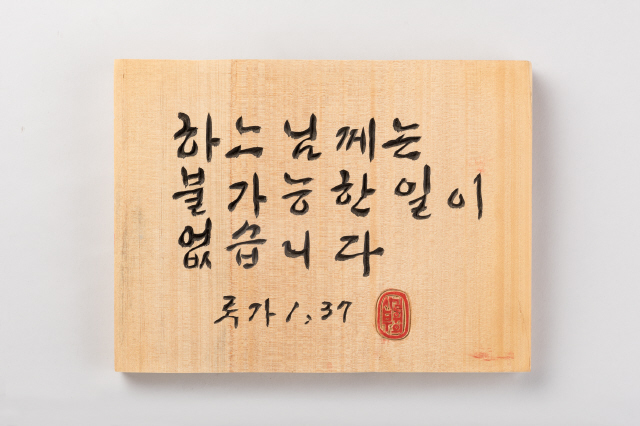 하느님께는
불가능한일이
없습니다
루가 1,37